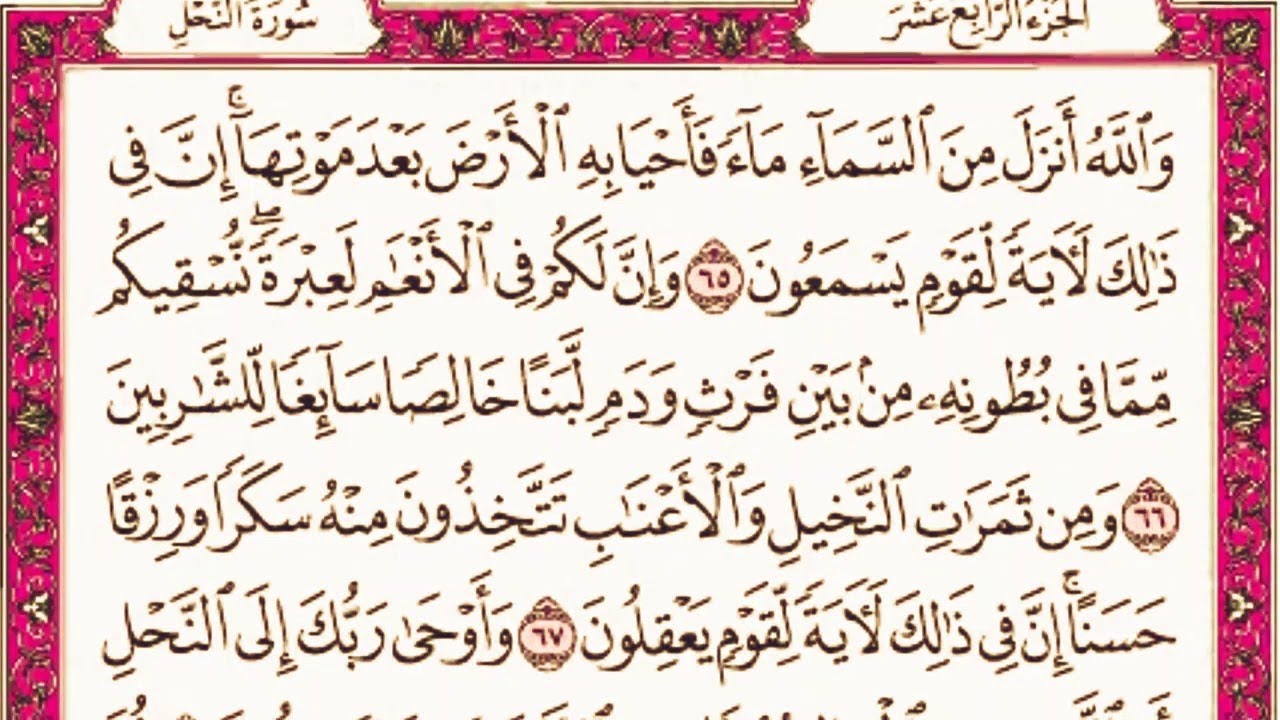 الجزء الرابع عشر
سورة النحل
وَٱللَّهُ أَنزَلَ مِنَ ٱلسَّمَآءِ مَآءً فَأَحْيَا بِهِ ٱلْأَرْضَ بَعْدَ مَوْتِهَآ ۚ إِنَّ فِى
ذَٰلِكَ لَـَٔايَةً لِّقَوْمٍ يَسْمَعُونَ ٦٥ وَإِنَّ لَكُمْ فِى ٱلْأَنْعَٰمِ لَعِبْرَةً ۖ نُّسْقِيكُم
مِّمَّا فِى بُطُونِهِۦ مِنۢ بَيْنِ فَرْثٍ وَدَمٍ لَّبَنًا خَالِصًا سَآئِغًا لِّلشَّٰرِبِينَ
٦٦ وَمِن ثَمَرَٰتِ ٱلنَّخِيلِ وَٱلْأَعْنَٰبِ تَتَّخِذُونَ مِنْهُ سَكَرًا وَرِزْقًا
حَسَنًا ۚ إِنَّ فِى ذَٰلِكَ لَـَٔايَةً لِّقَوْمٍ يَعْقِلُونَ ٦٧ وَأَوْحَىٰ رَبُّكَ إِلَى ٱلنَّحْلِ